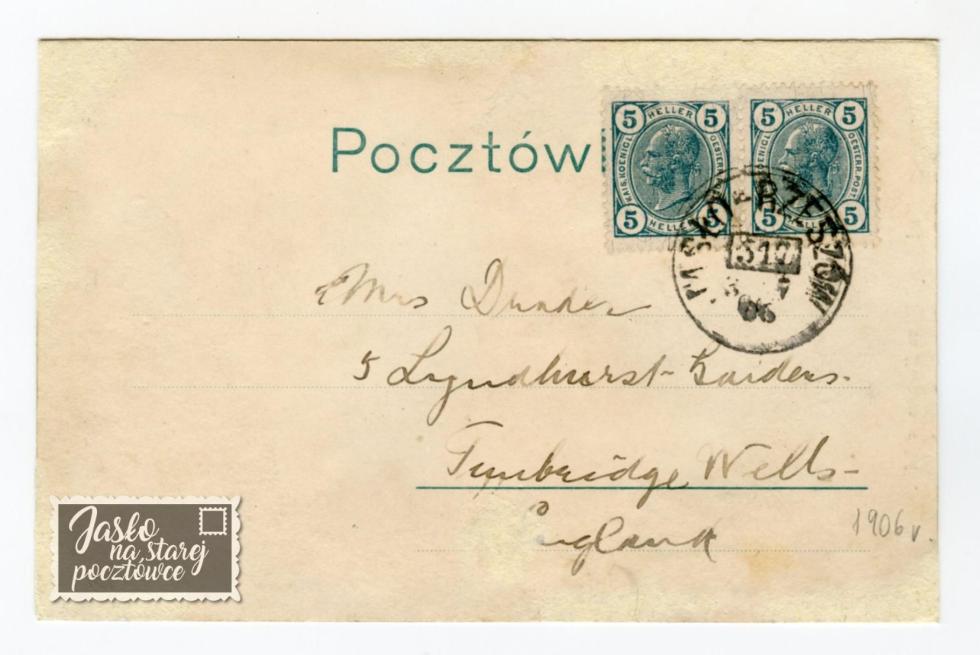 Pocztów
5 HELLER 5
KAIS. KOENIGL. OESTERR. POST
5 HELLER 5
5 HELLER 5
KOENIGL. OESTERR. POST
5 5
JASŁO-RZESZÓW
312
06
Mrs
5 Lyndhurst Gardens.
Tunbridge Wells-
England
1906 r.
Jasło
na starej
pocztówce